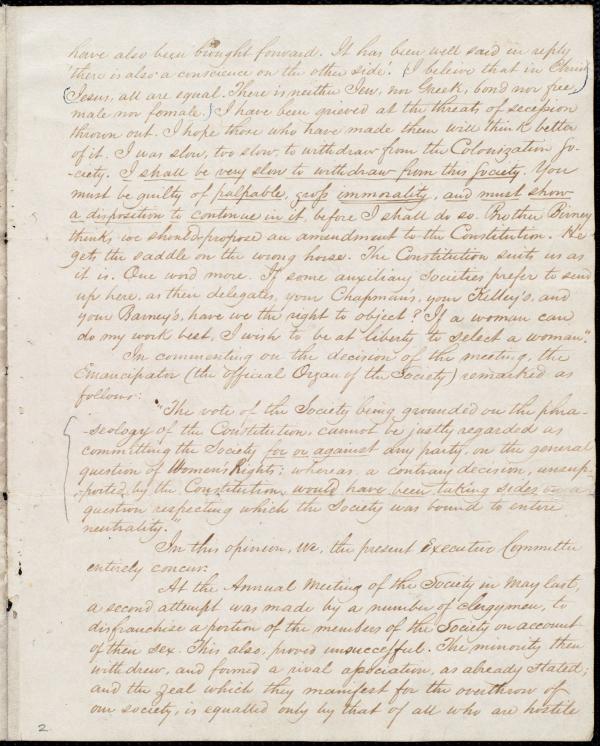 have also been brought forward. It has been well said in reply
'there is also a conscience on the other side'. (I beleive that in Christ
Jesus, all are equal. There is neither Jew, nor Greek, bond nor free,
male nor female.) I have been grieved at the threats of secession
thrown out. I hope those who have made them will think better
of it. I was slow, too slow, to withdraw from the Colonization So-
-ciety. I shall be very slow to withdraw from this Society. You
must be guilty of palpable, gross immorality, and must show
a disposition to continue in it, before I shall do so. Brother Birney
thinks we should propose an amendment to the Constitution. He
gets the saddle on the wrong horse. The Constitution suits us as
it is. One word more. If some auxiliary Societies prefer to send
up here, as their delegates, your Chapman's, your Kelley's, and
your Barney's, have we the right to object? If a woman can
do my work best, I wish to be at liberty to select a woman."
In commenting on the decision of the meeting, the
Emancipator (the official Organ of the Society) remarked as
follows:
"The vote of the Society being grounded on the phra-
-seology of the Constitution, cannot be justly regarded as
committing the Society for or against any party, on the general
question of Women's Rights; whereas, a contrary decision, unsup-
-ported by the Constitution, would have been taking sides on a
question respecting which the Society was bound to entire
neutrality."
In this opinion, we, the present Executive Committee
entirely concur.
At the Annual Meeting of the Society in May last,
a second attempt was made by a number of clergymen, to
disfranchise a portion of the members of the Society on account
of their sex. This also, proved unsuccessful. The minority then
withdrew, and formed a rival association, as already stated;
and the zeal which they manifest for the overthrow of
our society, is equalled only by that of all who are hostile
2